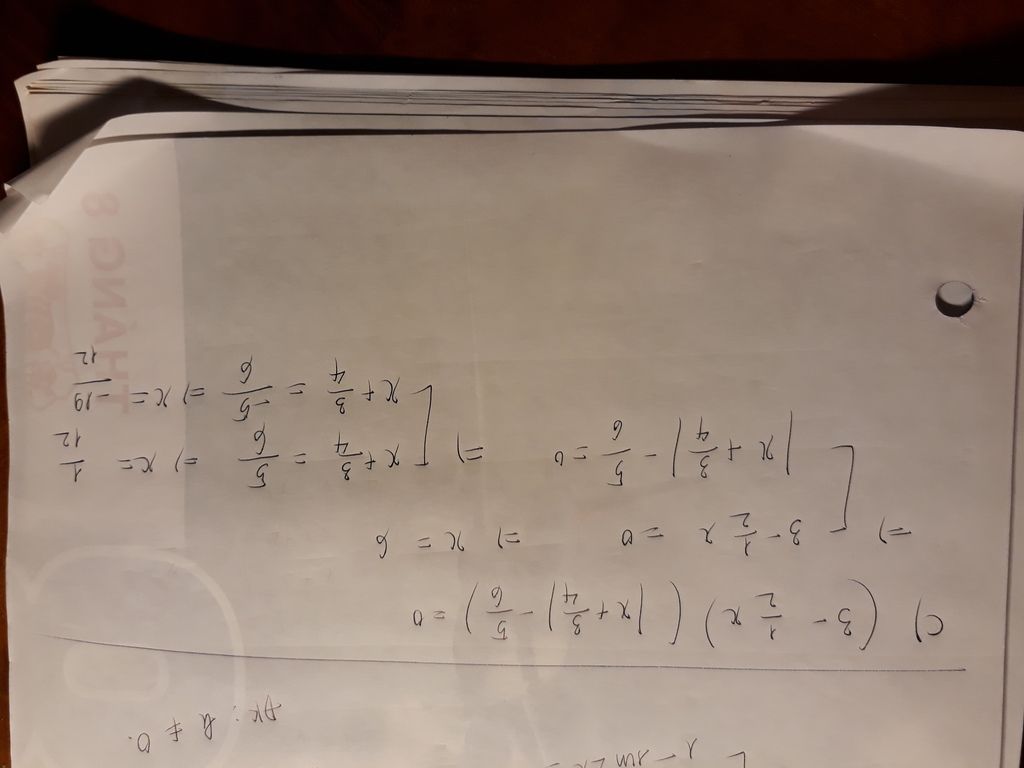 ĐK: x ≠ 0.
c) (3 - 1/2 x) (|x + 3/4| - 5/6) = 0
=> [ 3 - 1/2 x = 0 => x = 6
|x + 3/4| - 5/6 = 0 => [ x + 3/4 = 5/6 => x = 1/12
x + 3/4 = -5/6 => x = -19/12
THÁNG 8